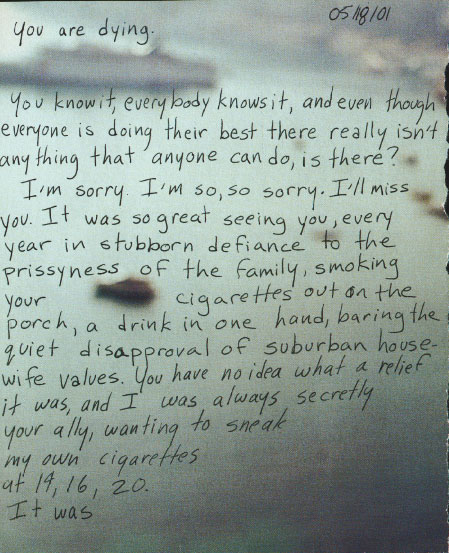 05/18/01
You are dying.
You know it, everybody knows it, and even though
everyone is doing their best there really isn't
anything that anyone can do, is there?
I'm sorry. I'm so, so sorry. I'll miss
you. It was so great seeing you, every
year in stubborn defiance to the
prissyness of the family, smoking
your cigarettes out on the
porch, a drink in one hand, baring the
quiet disapproval of suburban house-
wife values. You have no idea what a relief
it was, and I was always secretly
your ally, wanting to sneak
my own cigarettes
at 14, 16, 20.
It was